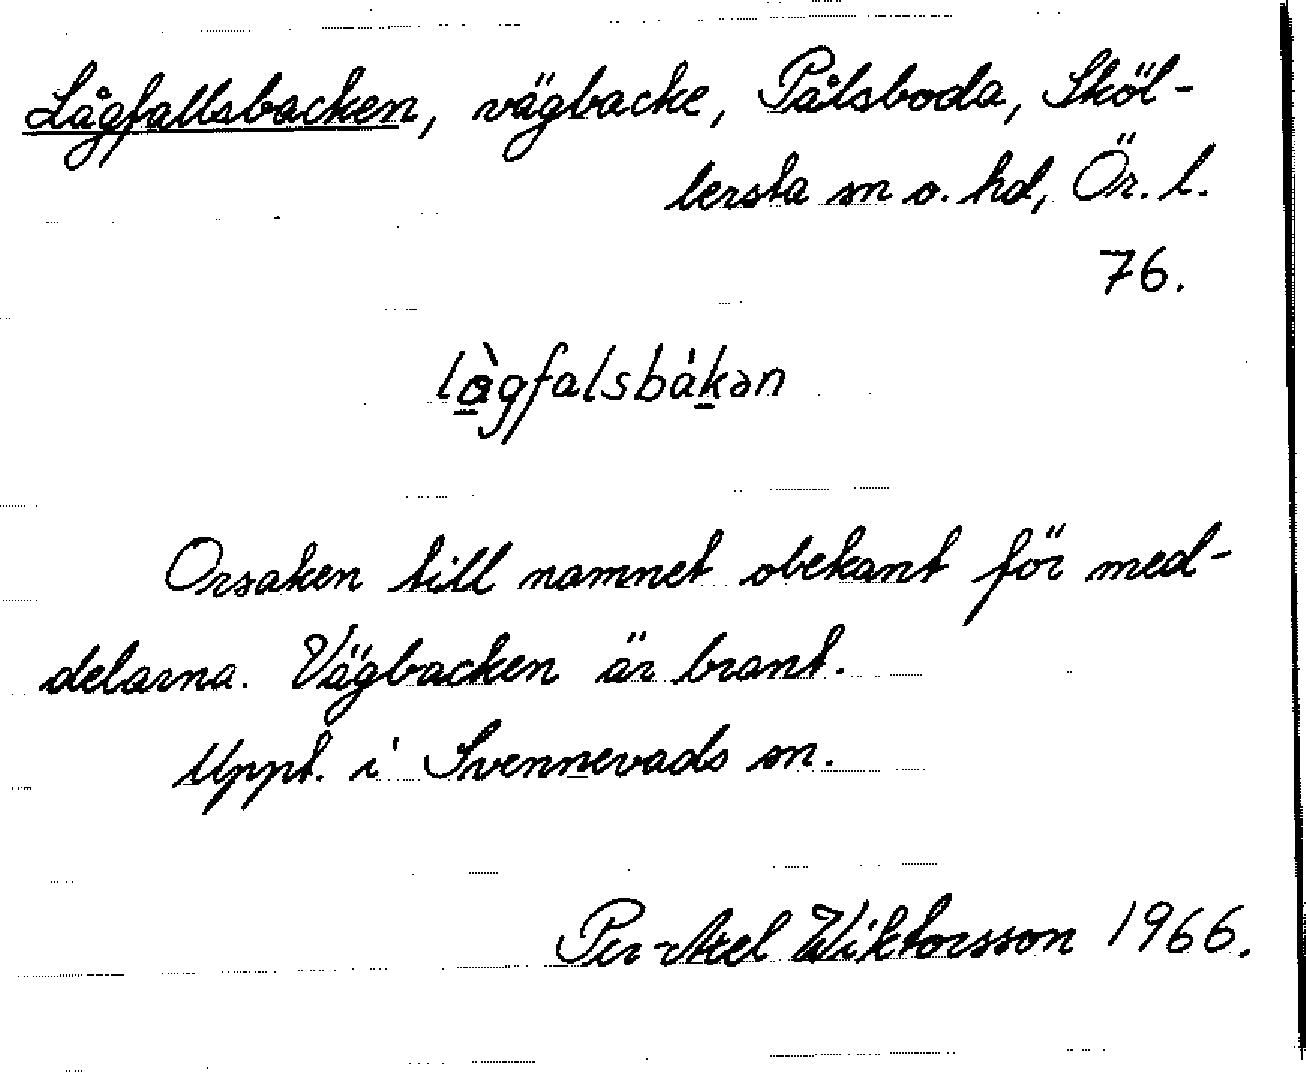 Lågfallsbacken, vägbacke, Pålsboda, Sköl-
lersta sn o. hd, Ör. l.
76.
lågfalsbákən
Orsaken till namnet obekant för med-
delarna. Vägbacken är brant.
Uppt. i Svennevads sn.
Per-Axel Wiktorsson 1966.